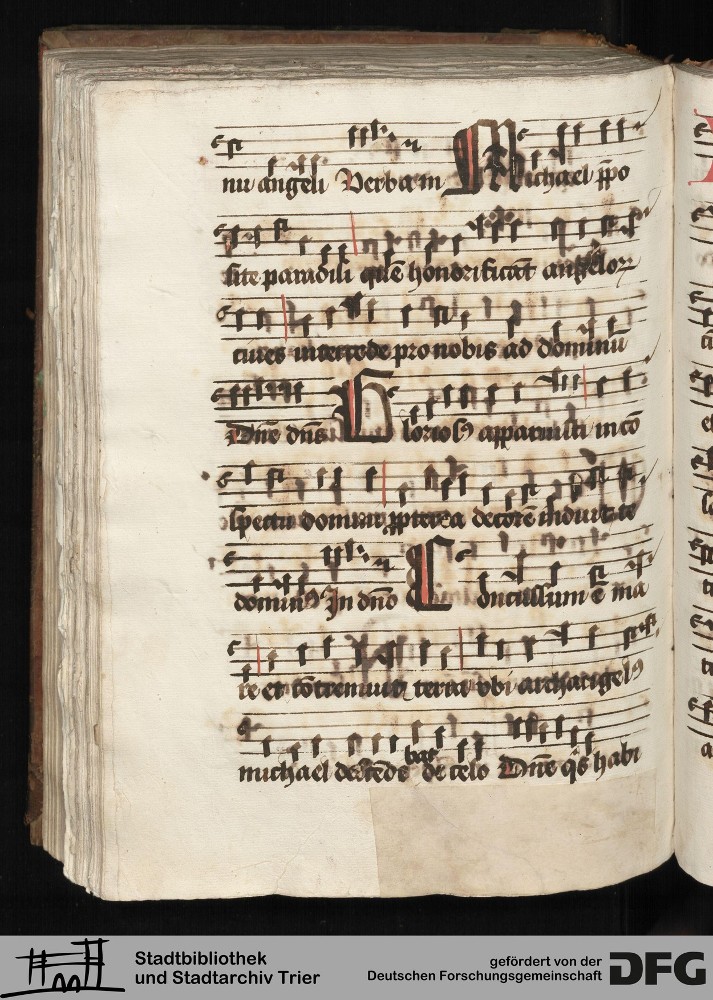 nu angeli Verba m Michael ppo
site paradisi quē honorificāt angelorꝫ
ciues intercede pro nobis ad dominū
Dn̄e dn̄s Gloriosꝰ apparuisti in cō
spectu domini ꝓpterea decorē induit te
dominꝰ In dn̄o Concussum ē ma
re et cōtremuit terra vbi archāgelꝰ
michael dēscēde bat de celo Dn̄e q̄s habi
Stadtbibliothek
und Stadtarchiv Trier
gefördert von der
Deutschen Forschungsgemeinschaft
DFG